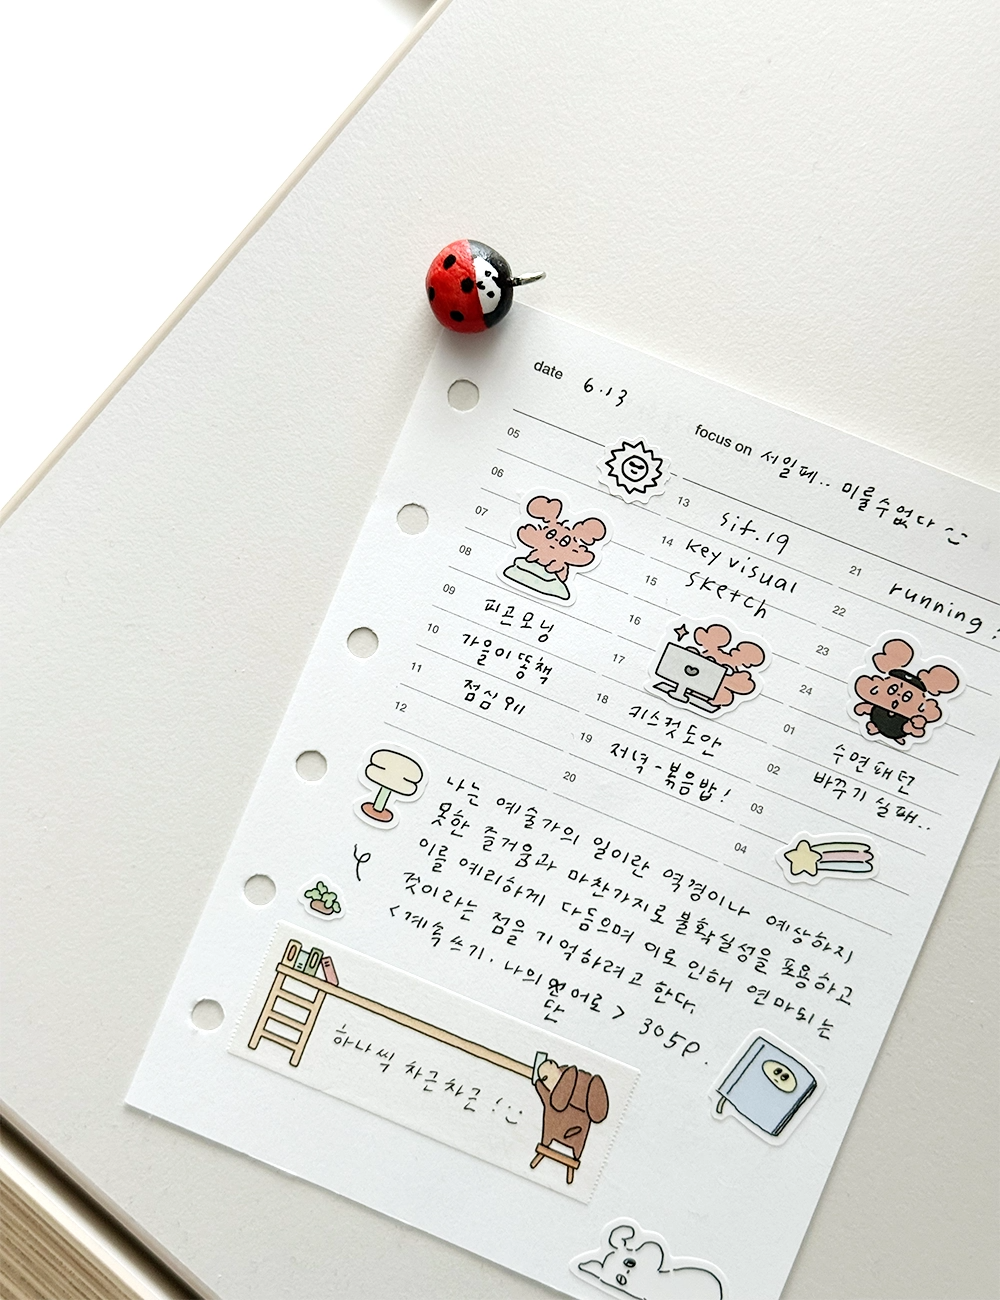 date 6.13
focus on 서일페.. 미룰수없다
05
06
07
08
09
피곤모닝
10
가을이똥책
11
점심 9니
12
13
sit.19
14
key visual
15
sketch
16
17
18
키스컷도안
19
저녁-볶음밥!
20
21
running!
22
23
24
01
수면패턴
02
바꾸기 실패..
03
04
나는 예술가의 일이란 역경이나 예상하지
못한 즐거움과 마찬가지로 불확실성을 포용하고
이를 예리하게 다듬으며 이로 인해 연마되는
것이라는 점을 기억하려고 한다.
<계속 쓰기. 나의 단어로> 305p.
하나씩 차근차근!